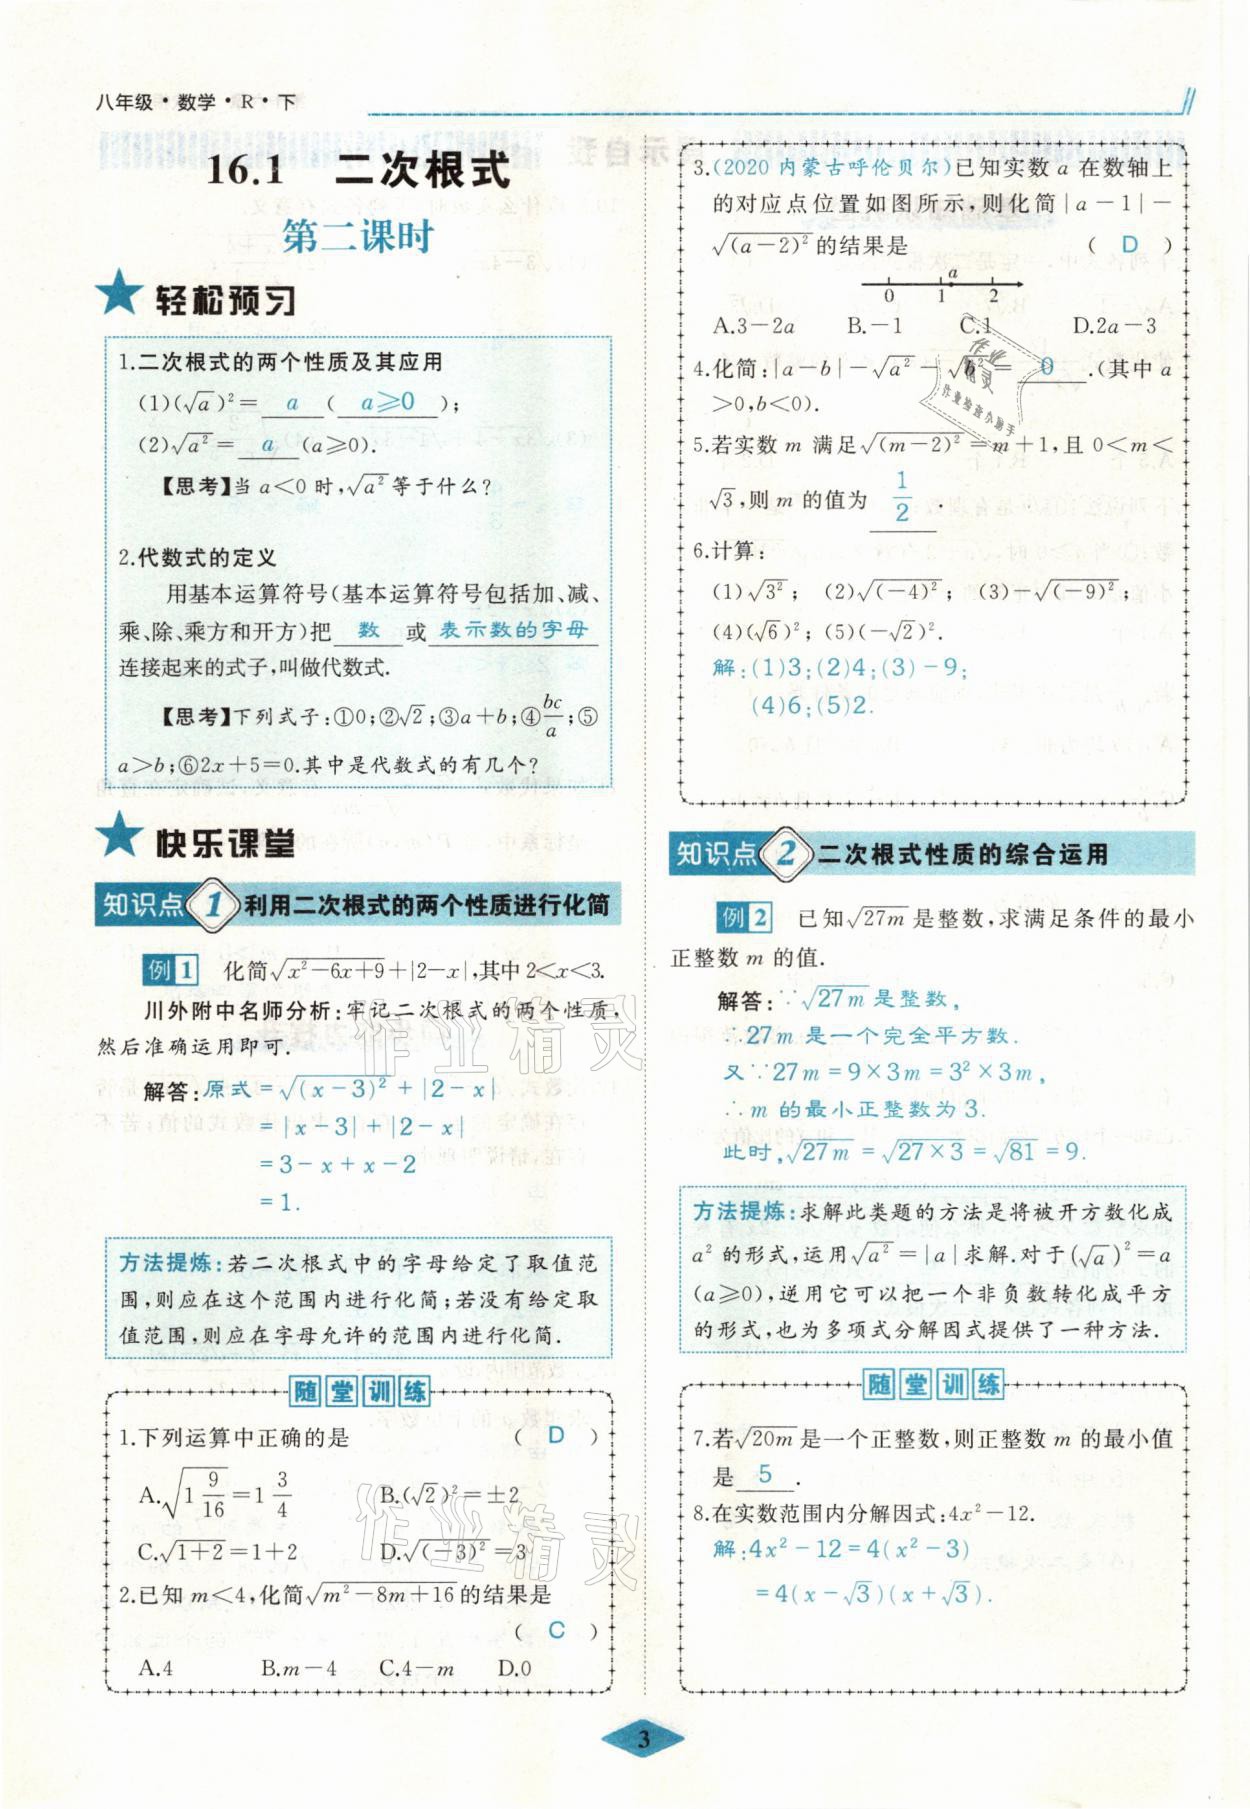 八年级·数学·R·下
16.1 二次根式
第二课时
轻松预习
1.二次根式的两个性质及其应用
(1)(√a)²= a ( a≥0 );
(2)√a²= a (a≥0).
【思考】当a<0时,√a²等于什么?
2.代数式的定义
用基本运算符号(基本运算符号包括加、减、
乘、除、乘方和开方)把 数 或 表示数的字母
连接起来的式子,叫做代数式.
【思考】下列式子:①0;②√2;③a+b;④bc/a;⑤
a>b;⑥2x+5=0.其中是代数式的有几个?
快乐课堂
知识点 1 利用二次根式的两个性质进行化简
例1 化简√(x²-6x+9)+|2-x|,其中2<x<3.
川外附中名师分析:牢记二次根式的两个性质,
然后准确运用即可.
解答:原式=√(x-3)²+|2-x|
=|x-3|+|2-x|
=3-x+x-2
=1.
方法提炼:若二次根式中的字母给定了取值范
围,则应在这个范围内进行化简;若没有给定取
值范围,则应在字母允许的范围内进行化简.
随堂训练
1.下列运算中正确的是 ( D )
A.√(1 9/16)=1 3/4 B.(√2)²=±2
C.√(1+2)=1+2 D.√(-3)²=3
2.已知m<4,化简√(m²-8m+16)的结果是
( C )
A.4 B.m-4 C.4-m D.0
3.(2020内蒙古呼伦贝尔)已知实数a在数轴上
的对应点位置如图所示,则化简|a-1|-
√(a-2)²的结果是 ( D )
a
0 1 2
A.3-2a B.-1 C.1 D.2a-3
4.化简:|a-b|-√a²-√b²= 0 .(其中a
>0,b<0).
5.若实数m满足√(m-2)²=m+1,且0<m<
√3,则m的值为 1/2
6.计算:
(1)√3²; (2)√(-4)²; (3)-√(-9)²;
(4)(√6)²; (5)(-√2)².
解:(1)3;(2)4;(3)-9;
(4)6;(5)2.
知识点 2 二次根式性质的综合运用
例2 已知√27m是整数,求满足条件的最小
正整数m的值.
解答:∵√27m是整数,
∴27m是一个完全平方数.
又∵27m=9×3m=3²×3m,
∴m的最小正整数为3.
此时,√27m=√(27×3)=√81=9.
方法提炼:求解此类题的方法是将被开方数化成
a²的形式,运用√a²=|a|求解.对于(√a)²=a
(a≥0),逆用它可以把一个非负数转化成平方
的形式,也为多项式分解因式提供了一种方法.
随堂训练
7.若√20m是一个正整数,则正整数m的最小值
是 5 .
8.在实数范围内分解因式:4x²-12.
解:4x²-12=4(x²-3)
=4(x-√3)(x+√3).
3
作业精灵
作业精灵
作业精灵
作业检查小助手